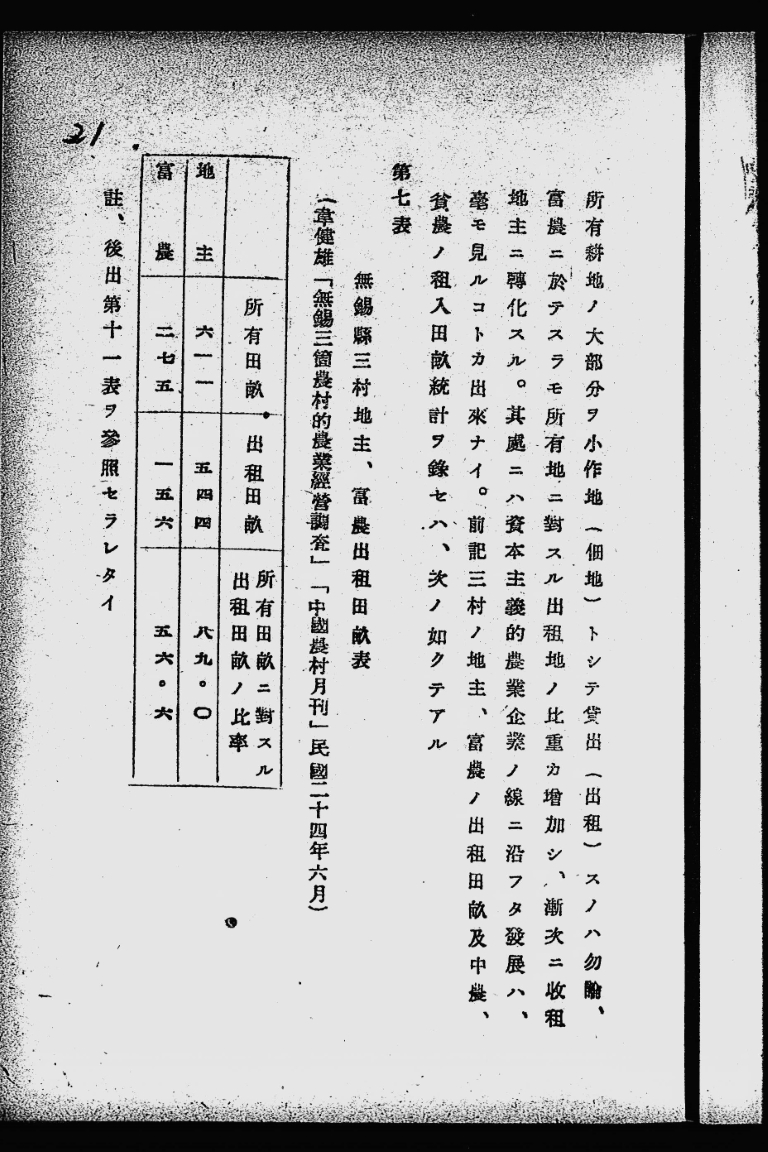 所有耕地ノ大部分ヲ小作地(佃地)トシテ貸出(出租)スノハ勿論、
富農ニ於テスラモ所有地ニ對スル出租地ノ比重カ增加シ、漸次ニ收租
地主ニ轉化スル。其處ニハ資本主義的農業企業ノ線ニ沿フタ發展ハ、
毫モ見ルコトカ出來ナイ。前記三村ノ地主、富農ノ出租田畝及中農、
貧農ノ租入田畝統計ヲ錄セハ、次ノ如クテアル
第七表
無錫縣三村地主、富農出租田畝表
(韋健雄「無錫三箇農村的農業經營調查」「中國農村月刊」民國二十四年六月)
所有田畝 出租田畝 所有田畝ニ對スル
出租田畝ノ比率
地主 六一一 五四四 八九。〇
富農 二七五 一五六 五六。六
註、後出第十一表ヲ參照セラレタイ
21.